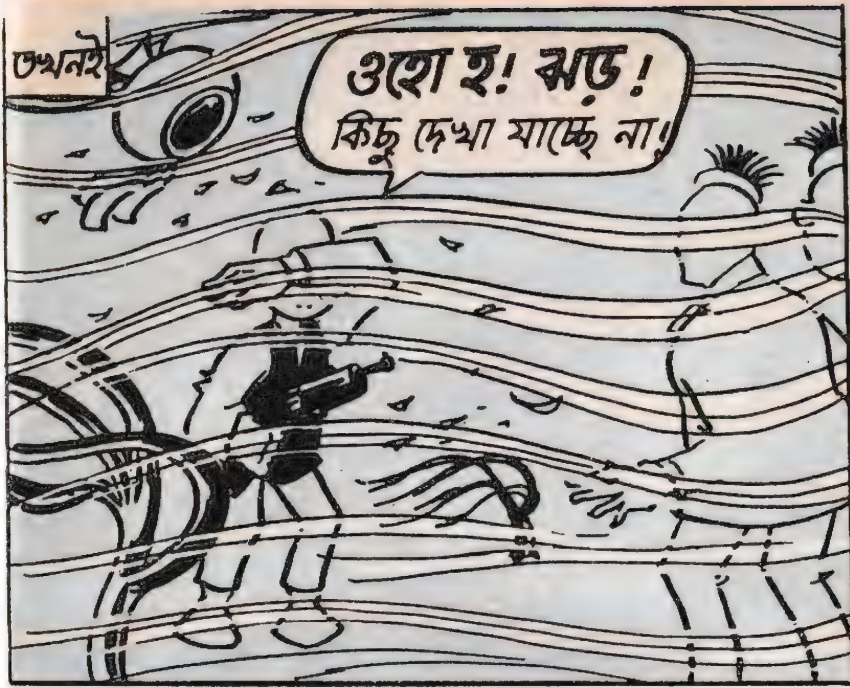 তখনই
ওহো হ! ঝড়!
কিছু দেখা যাচ্ছে না!